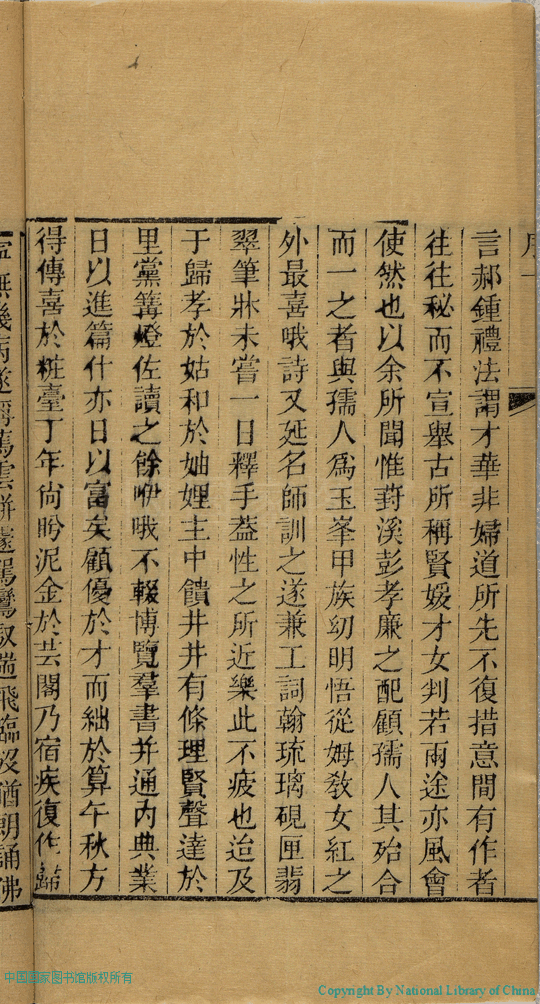 言郝鍾禮法謂才華非婦道所先不復措意間有作者
往往秘而不宣舉古所稱賢媛才女判若兩途亦風會
使然也以余所聞惟葑溪彭孝廉之配顧孺人其殆合
而一之者與孺人爲玉峯甲族幼明悟從姆敎女紅之
外最喜哦詩又延名師訓之遂兼工詞翰琉璃硯匣翡
翠筆牀未嘗一日釋手葢性之所近樂此不疲也迨及
于歸孝於姑和於妯娌主中饋井井有條理賢聲達於
里黨篝燈佐讀之餘吚哦不輟博覽羣書并通內典業
日以進篇什亦日以富矣顧優於才而絀於算午秋方
得傳喜於粧臺丁年尙盻泥金於芸閣乃宿疾復作歸
中国国家图书馆版权所有
Copyright By National Library of China